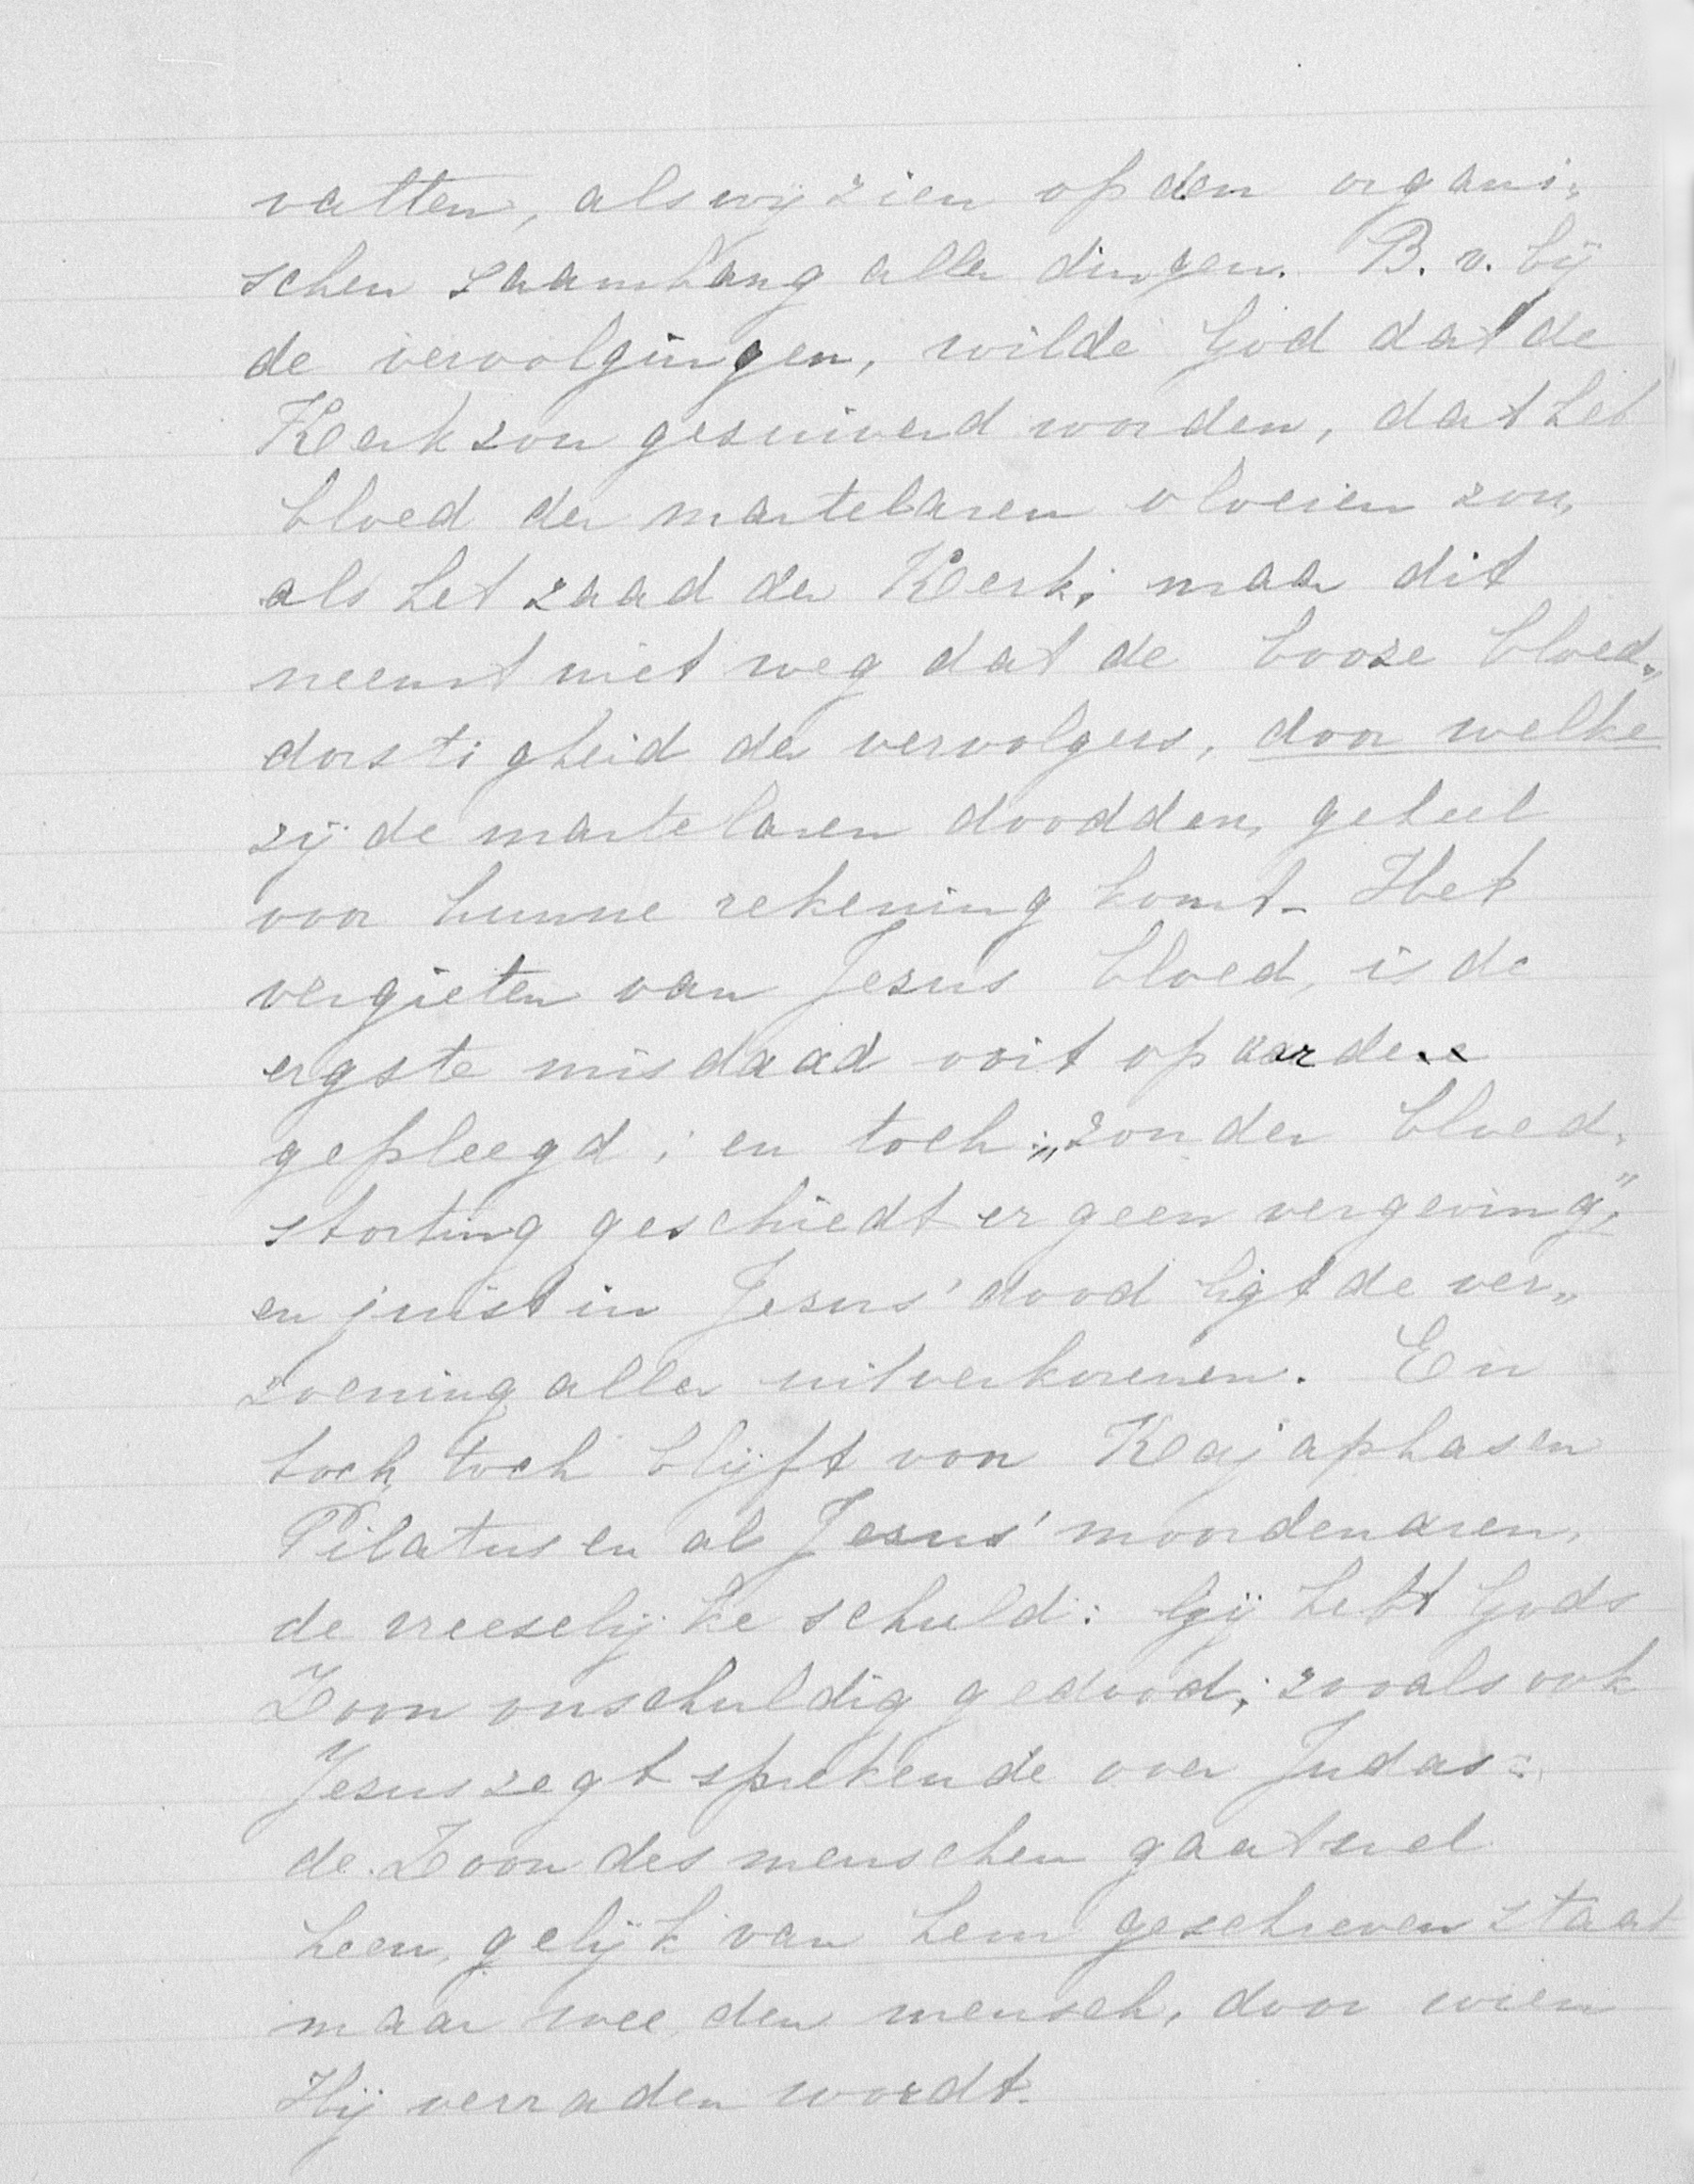 vatten, als wij zien op den organi„
schen zaamhang aller dingen. B. v. bij
de vervolgingen, wilde God dat de
Kerk zou gezuiverd worden, dat het
bloed der martelaren vloeien zou,
als het zaad der Kerk; maar dit
neemt niet weg dat de booze bloed„
dorstigheid der vervolgers, door welke
zij de martelaren doodden, geheel
voor hunne rekening komt. Het
vergieten van Jezus bloed, is de
ergste misdaad ooit op aarde
gepleegd; en toch: „zonder bloed„
storting geschiedt er geen vergeving",
en juist in Jezus' dood ligt de ver„
zoening aller uitverkorenen. En
toch, toch blijft voor Kajaphas en
Pilatus en al Jezus' moordenaren,
de vreeselijke schuld: Gij hebt Gods
Zoon onschuldig gedood; zooals ook
Jezus zegt sprekende over Judas:
de Zoon des menschen gaat wel
heen, gelijk van hem geschreven staat
maar wee, den mensch, door wien
Hij verraden wordt.